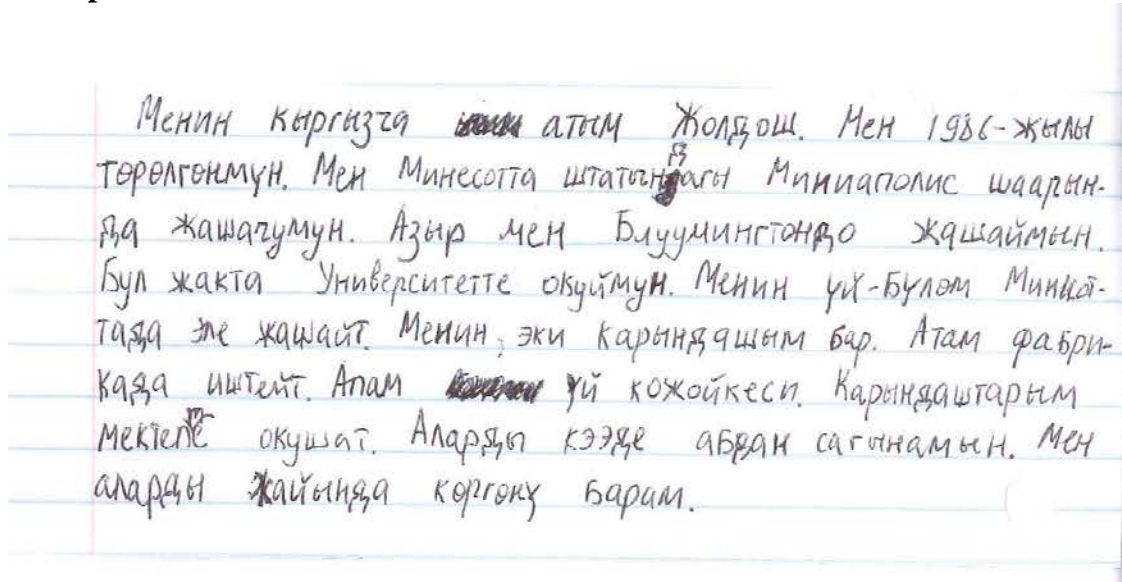 Менин кыргызча атым Жолдош. Мен 1986-жылы
төрөлгөнмүн. Мен Минесотта штатындагы Миниаполис шаарын-
да жашачумун. Азыр мен Блуумингтондо жашаймын.
Бул жакта Университетте окуймун. Менин үй-бүлөм Минисот-
тада эле жашайт. Менин, эки карындашым бар. Атам фабри-
када иштейт. Апам үй кожойкеси. Карындаштарым
мектепте окушат. Аларды кээде абдан сагынамын. Мен
аларды жайында көргөнү барам.